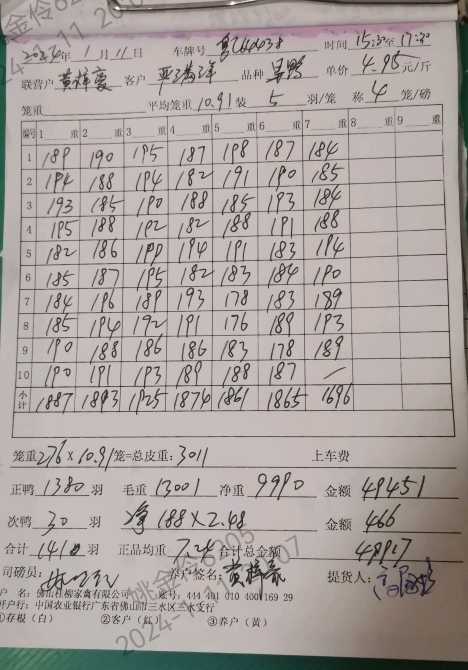 2024年1月11日 车牌号 时间 15:30至17:30
联营户 黄梓豪 客户 品种 单价 4.95元/斤
笼重 平均笼重 10.91 装 5 羽/笼 称 4 笼/磅
编号 1 重 2 重 3 重 4 重 5 重 6 重 7 重 8 重 9 重
1 189 190 195 187 198 187 184
2 194 188 194 182 191 190 185
3 193 185 190 188 185 193 184
4 195 188 192 182 188 191 188
5 182 186 199 194 191 183 194
6 185 187 195 182 183 184 190
7 184 196 189 193 178 183 189
8 185 194 192 191 176 189 193
9 190 188 186 186 183 178 189
10 190 191 193 189 188 187 —
小计 1887 1893 1925 1874 1861 1865 1696
笼重 276×10.91 笼=总皮重:3011 上车费
正鸭 1380 羽 毛重 13001 净重 9990 金额 49451
次鸭 30 羽 净 188×2.48 金额 466
合计 1410 羽 正品均重 7.24 合计总金额 49917
司磅员: 养户签名: 提货人:
户 名: 佛山 家禽有限公司 账号: 444 491 010 400 169 29
开户行: 中国农业银行广东省佛山市三水区三水支行
①存根(白) ②客户(红) ③养户(黄)